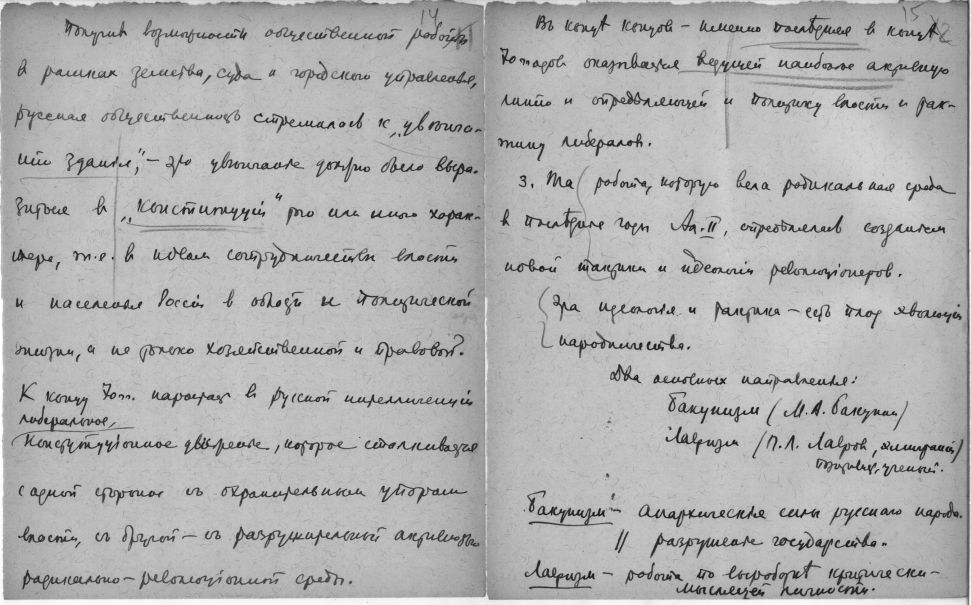 14
Получив возможности общественной работы
в рамках земства, суда и городского управленья,
русская общественность стремилась к „увѣнча-
нию зданья," – это увѣнчанье должно было выра-
зиться в „конституции" того или иного харак-
тера, т.е. в идеалѣ сотрудничества власти
и населенья России в области политической
жизни, а не только хозяйственной и правовой.
К концу 70х гг. нарастает в русской интеллигенции
либеральное,
конституционное движенье, которое сталкивается
с одной стороны съ охранительным упорством
власти, съ другой – съ разрушительной активностью
радикально – революціонной среды.
15
2
Въ концѣ концов – именно послѣдняя в концѣ
70х годов оказывается ведущей наиболее активную
линию и опредѣляющей и политику власти и так-
тику либералов.
3. Та работа, которую вела радикальная среда
в послѣдние годы Ал. II, опредѣлялась созданием
новой тактики и идеологии революціонеров.
Эта идеология и тактика – есть плод эволюции
народничества.
Два основных направленья:
Бакунизм (М.А. Бакунин)
Лавризм (П.Л. Лавров, эмиграция)
ученый.
Бакунизм – анархическия силы русского народа.
// разрушенье государства.
Лавризм – работа по выработкѣ критически–
мыслящей личности.